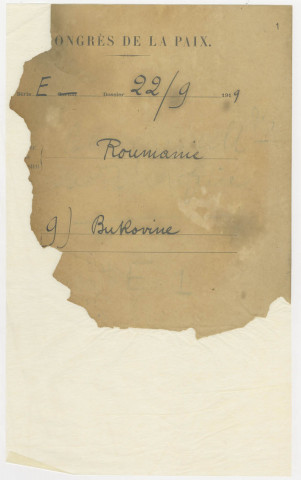 1
ONGRÈS DE LA PAIX.
Série E — Dossier 22/9 1919
Roumanie
9) Bukovine